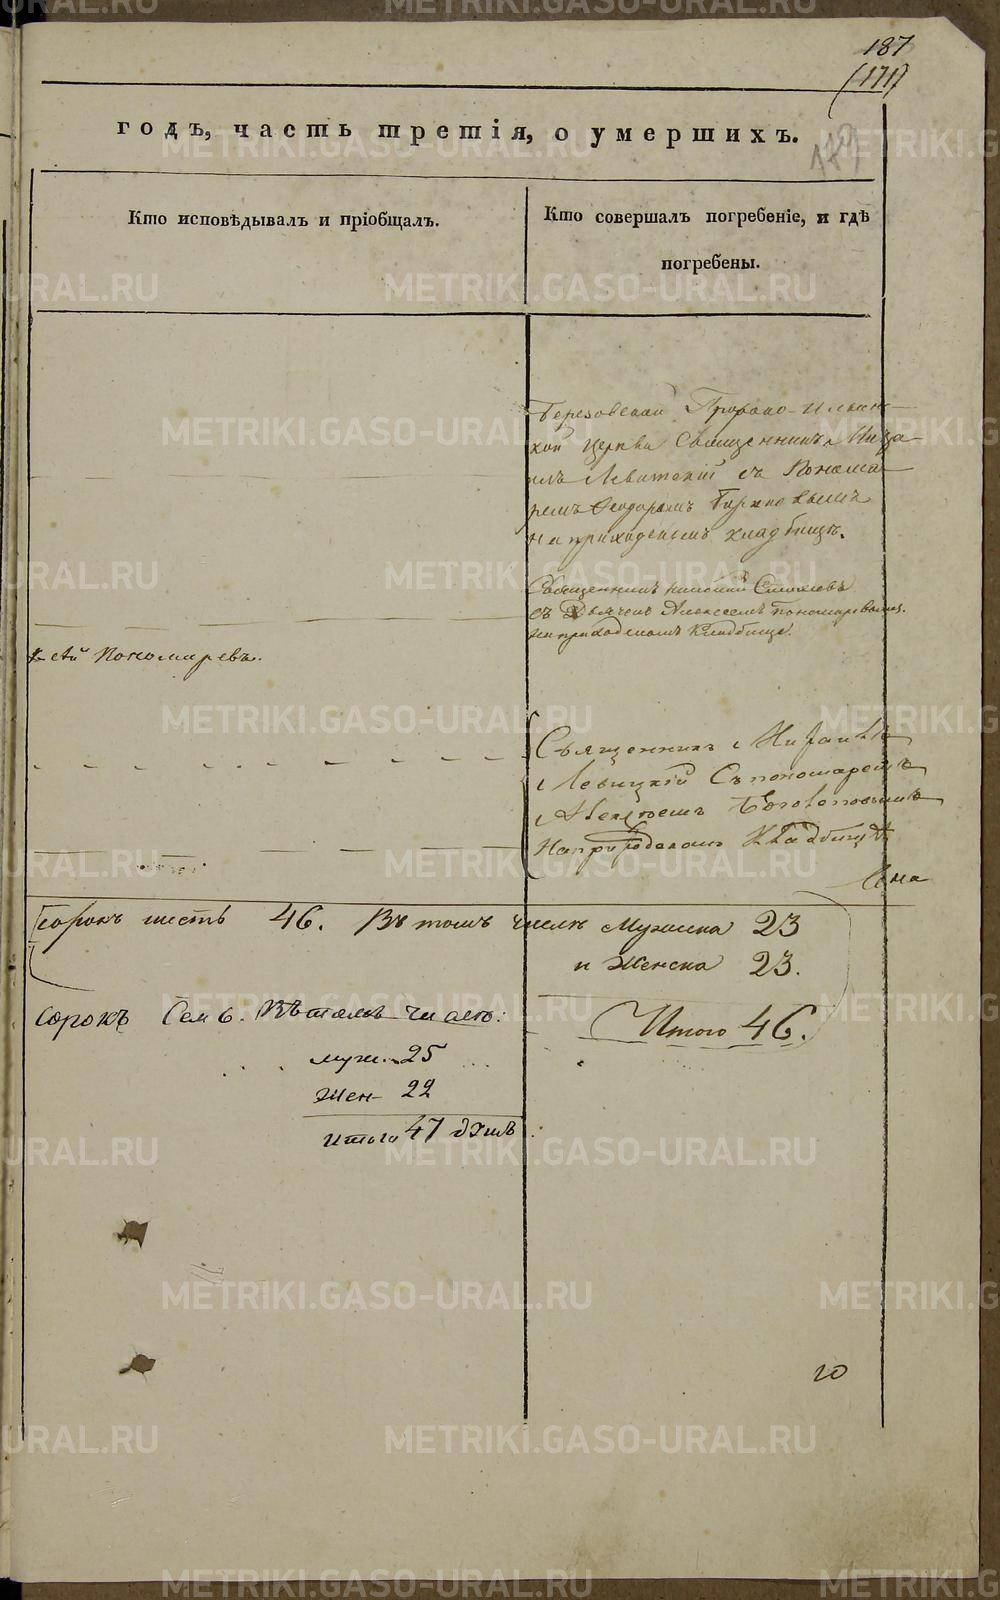 187
(171)
179
годъ, часть третія, о умершихъ.
Кто исповѣдывалъ и пріобщалъ.
Кто совершалъ погребеніе, и гдѣ
погребены.
Березовской Пророко-Ильин-
кой церкви Священникъ Миха
илъ Левитскій съ Понома
ремъ Феодоромъ
на приходскомъ кладбищѣ.
Священникъ
съ Дьячемъ Алексеемъ Пономаревымъ
на приходскомъ Кладбище.
сѣй Пономаревъ.
Священникъ Михаилъ
Левицкій Съ пономаремъ
Алексѣемъ
На приходскомъ Кладбищѣ
сорокъ шесть 46. Въ томъ числѣ Мужеска 23
и Женска 23.
Итого 46.
сорокъ Семь. Въ томъ числѣ:
муж. 25
Жен 22
Итого 47
20
METRIKI.GASO-URAL.RU